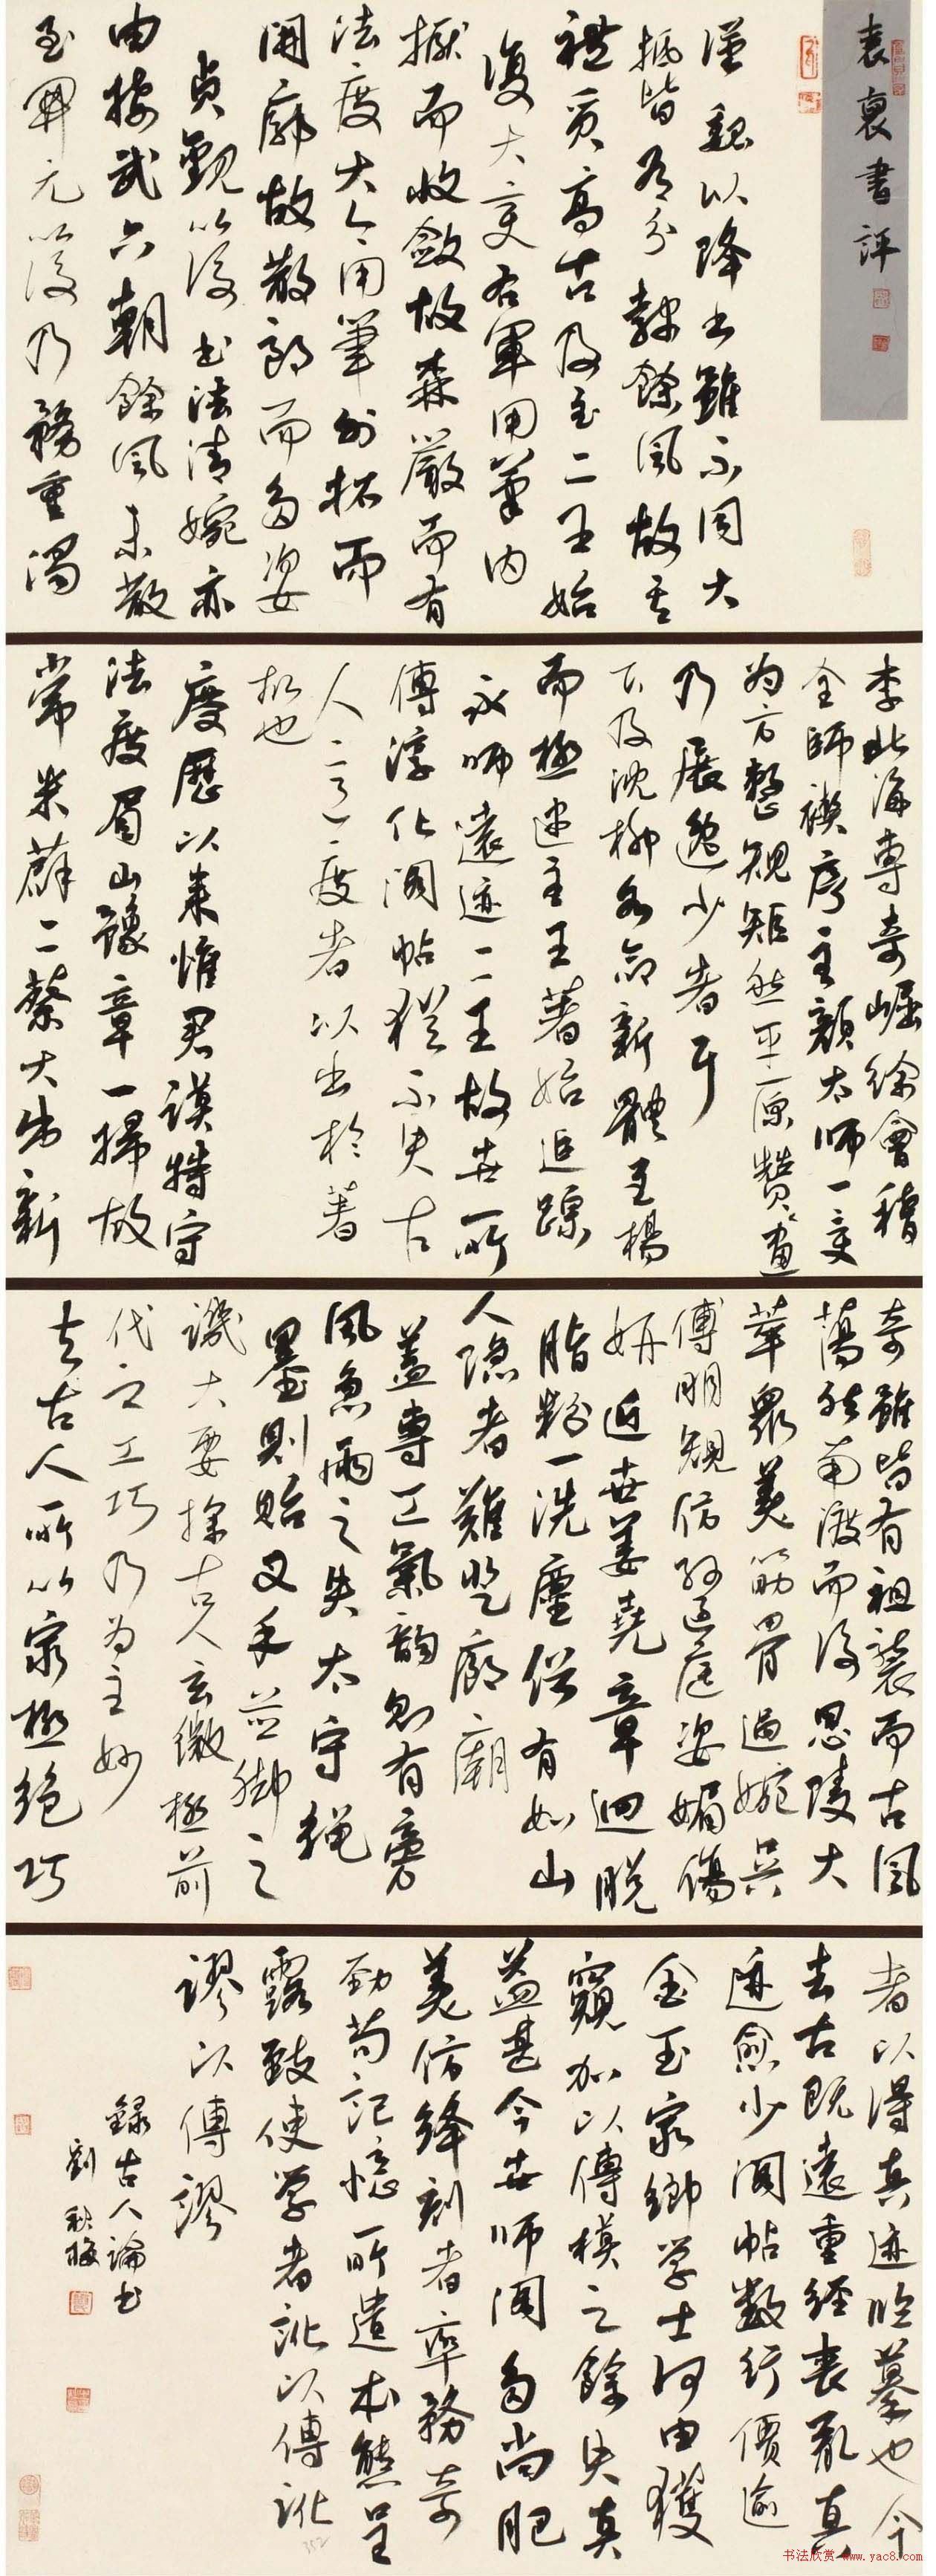 袁裒書評
漢魏以降書雖不同大
抵皆有分隸餘風故其
體質高古及至二王始
復大變右軍用筆内
擫而收斂故森嚴而有
法度大令用筆外拓而
開廓故散朗而多姿
貞觀以後書法清婉亦
由接武六朝餘風未散
至開元以後乃務重濁
李北海專奇崛徐會稽
全師禊序至顏太師一變
為方整規矩然平原贊畫
乃展逸少者耳
下及沈柳各命新體至楊
而極逮至王著始追踪
永師遠迹二王故世所
傳淳化閣帖猶不失古
人之意度者以出於著
故也
慶歷以來惟君謨特守
法度眉山豫章一掃故
常米薛二蔡大出新
奇雖皆有祖襲而古風
蕩然南渡而後思陵大
萃眾美筋骨過婉吳
傅朋規仿孫過庭姿媚傷
妍近世姜堯章迥脫
脂粉一洗塵俗有如山
人隱者難登廊廟
蓋專工氣韻則有旁
風急雨之失太守繩
墨則貽叉手並腳之
譏大要探古人玄微極前
代之工巧乃為至妙
夫古人所以窮極絕巧
者以得真迹臨摹也今
去古既遠重經喪亂真
迹愈少閣帖數行價逾
金玉窮鄉學士何由獲
窺加以傳模之餘失真
益甚今世師閣多尚肥
美仿絳刻者率務奇
勁苟記憶所遺本態呈
露致使學者訛以傳訛
謬以傳謬
錄古人論書
劉秋
书法欣赏 www.yac8.com